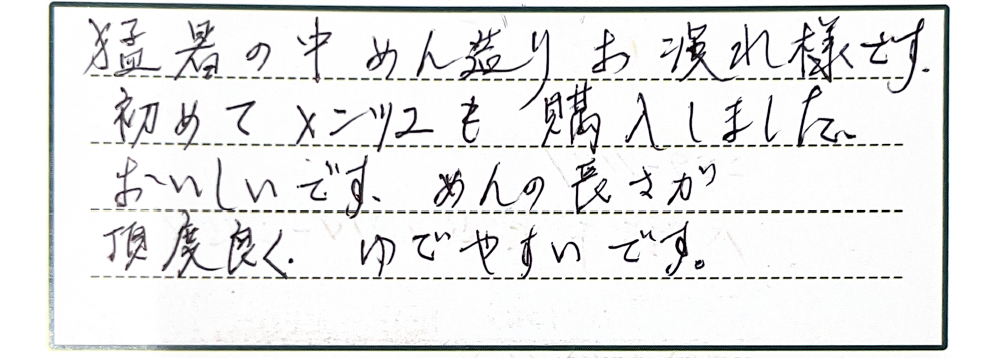 猛暑の中めん造りお疲れ様です.
初めてメンツユも購入しました。
おいしいです. めんの長さが
頂度良く. ゆでやすいです。